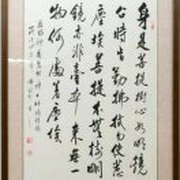 身是菩提樹心如明鏡
台時時勤拂拭勿使惹
塵埃菩提本無樹明
鏡亦非臺本來無一
物何處著塵埃